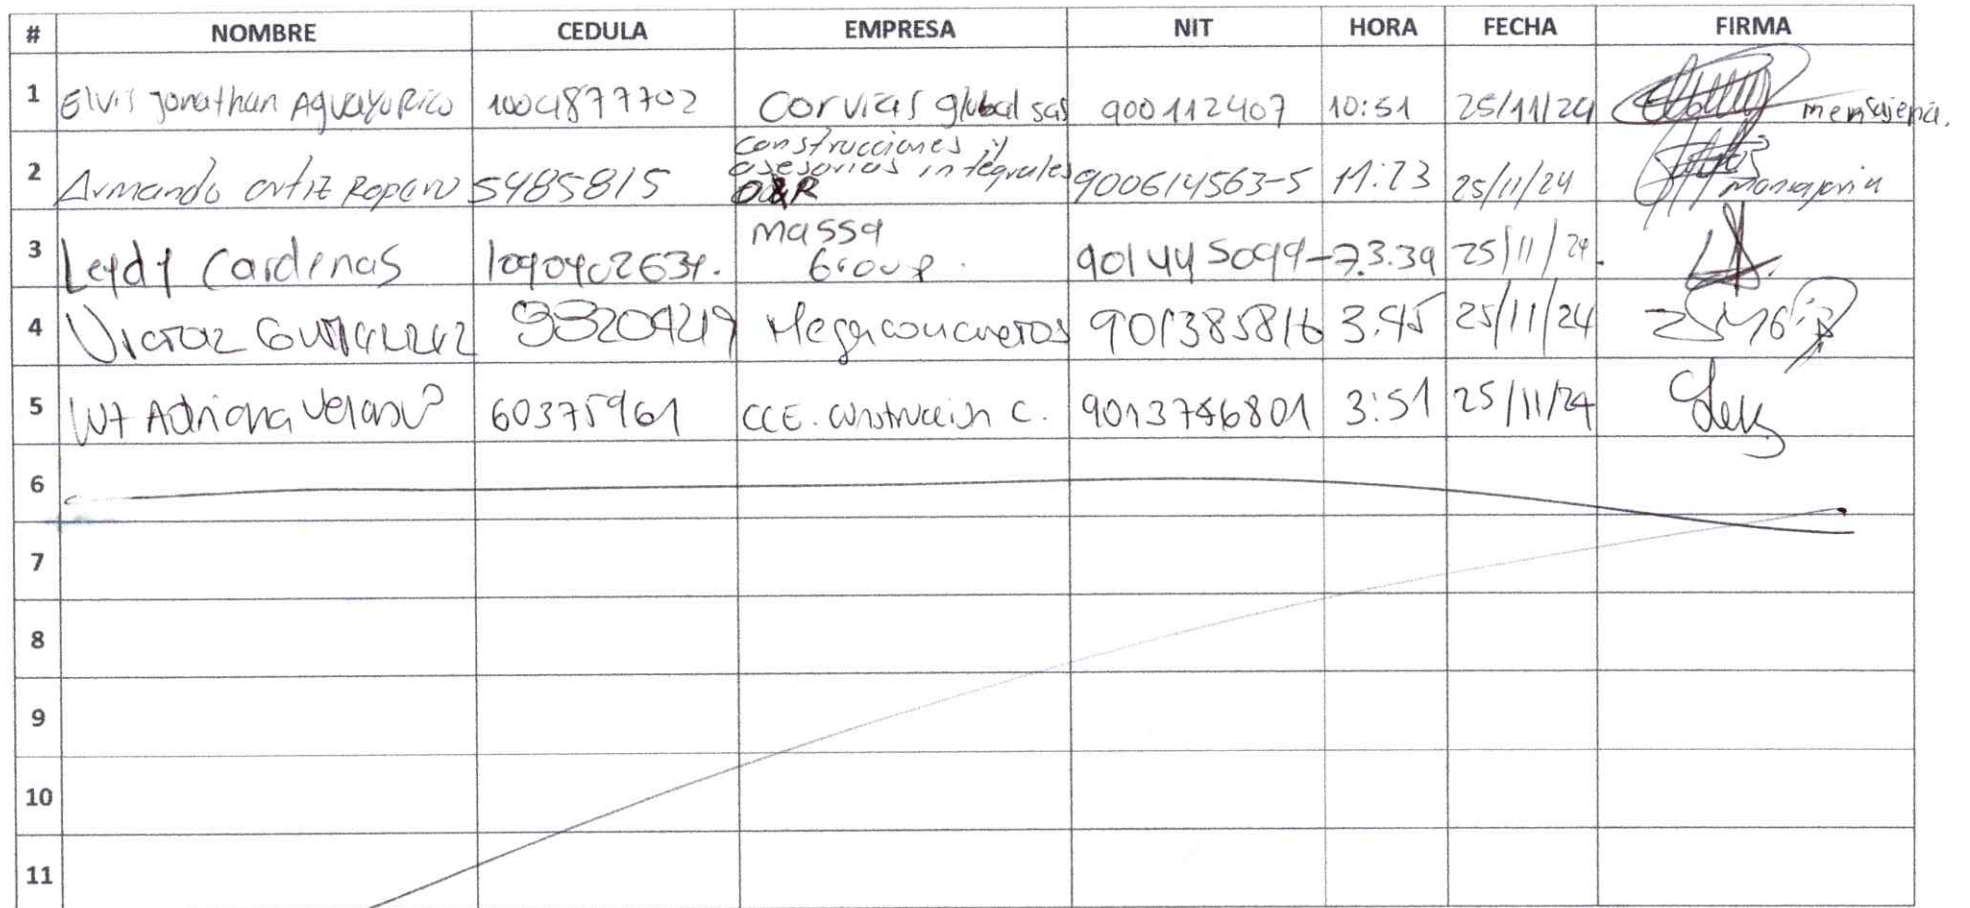 # NOMBRE CEDULA EMPRESA NIT HORA FECHA FIRMA
1 Elvis Jonathan Aguayo Rico 1004877702 Corvias global sas 900112407 10:51 25/11/24 mensajeria.
2 Armando ortiz Ropero 5485815 construcciones y asesorias integrales O&R 900614563-5 11:23 25/11/24 mensajeria
3 Leydy Cardenas 1090402634. massa Group. 901445099-7 3.39 25/11/24.
4 Victor Gutierrez 901385816 3.45 25/11/24
5 Adriana Velasco 60375961 CCE. Construccion C. 3:51 25/11/24
6
7
8
9
10
11